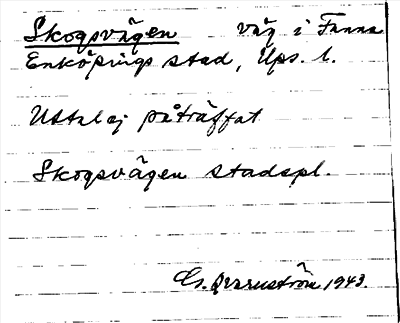 Skogsvägen väg i Fanna
Enköpings stad, Ups. l.
Uttal ej påträffat
Skogsvägen stadspl.
Cs. Qvarnström 1943.